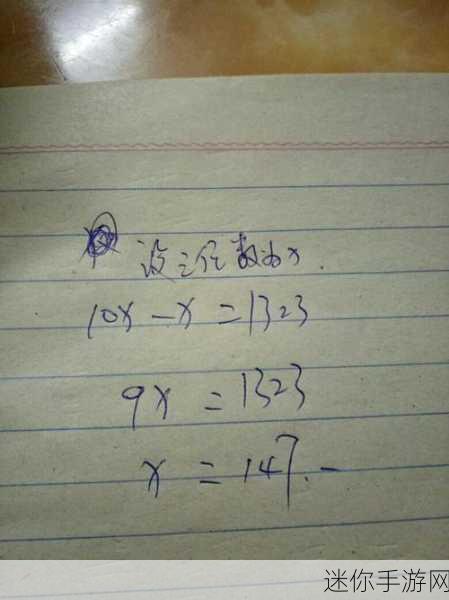 设三位数为x.
10x-x=1323
9x=1323
x=147.
迷你手游网